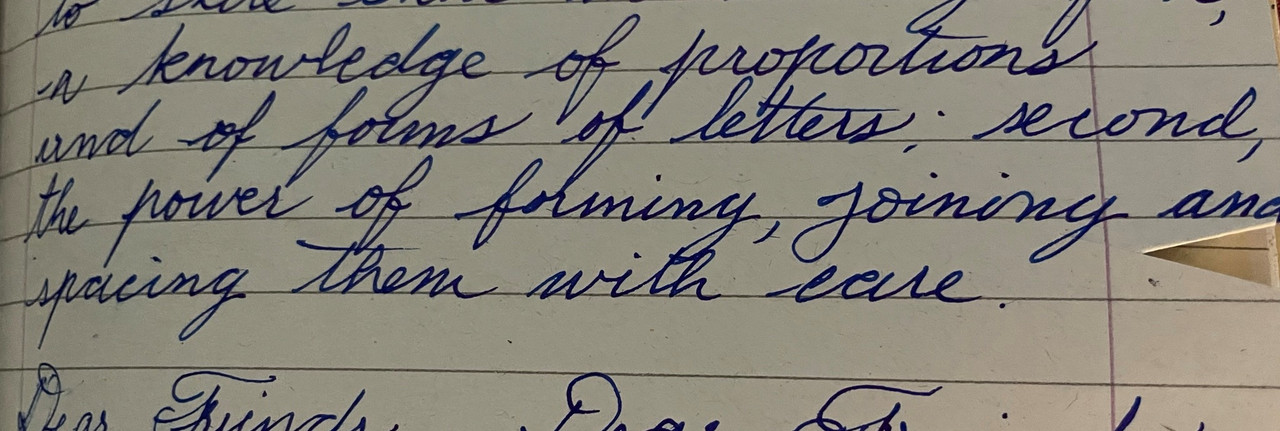 to
a knowledge of proportions
and of forms of letters; second,
the power of forming, joining and
spacing them with care.
Dear Friends, Dear